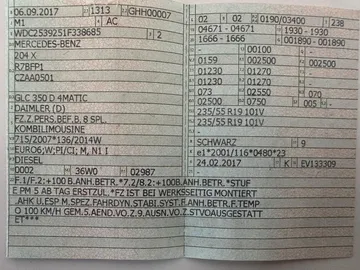 06.09.2017 1313 GHH00007
M1 AC
WDC2539251F338685 2
MERCEDES-BENZ
204 X
R7BFP1
CZAA0501
GLC 350 D 4MATIC
DAIMLER (D)
FZ.Z.PERS.BEF.B. 8 SPL.
KOMBILIMOUSINE
715/2007*136/2014W
EURO6;W;PI/CI; M, N1 I
DIESEL
0002 36W0 02987
02 02 0190/03400 238
04671 - 04671 1930 - 1930
1666 - 1666 001890 - 001890
- 00100 -
059 - 0152 002500
01230 01270 -
01230 01270 -
073 02550 070
02500 0750 005 -
235/55 R19 101V
235/55 R19 101V
-
SCHWARZ 9
e1*2001/116*0480*23
24.02.2017 K EV133309
F.1/F.2:+100 B.ANH.BETR.*7.2/8.2:+100B.ANH.BETR.*STUF
E PM 5 AB TAG ERSTZUL.*FZ IST BEI WERKSSEITIG MONTIERT
.AHK U.ESP M.SPEZ.FAHRDYN.STABI.SYST.F.ANH.BETR.F.TEMP
O 100 KM/H GEM.5.AEND.VO.Z.9.AUSN.VO.Z.STVOAUSGESTATT
ET***